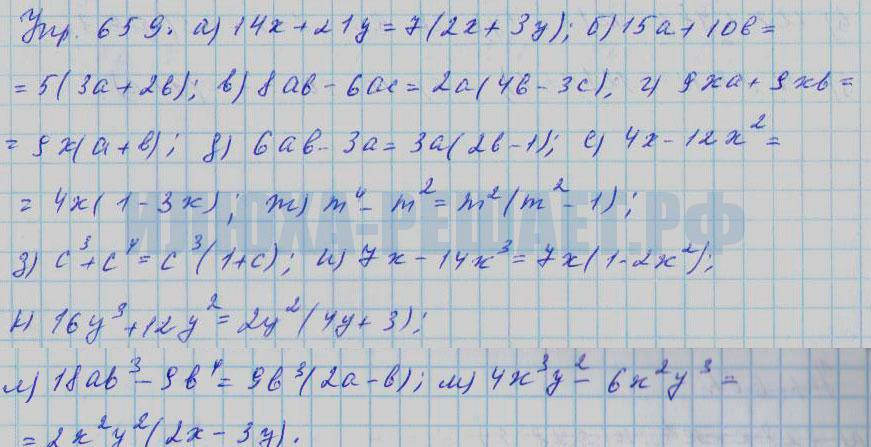 Упр. 659. а) 14x + 21y = 7(2x + 3y); б) 15а + 10в =
= 5(3а + 2в); в) 8ав - 6ас = 2а(4в - 3с); г) 9xа + 9xв =
= 9x(а + в); д) 6ав - 3а = 3а(2в - 1); е) 4x - 12x² =
= 4x(1 - 3x); ж) m⁴ - m² = m²(m² - 1);
ИЛЮХА-РЕШАЕТ.РФ
з) c³ + c⁴ = c³(1 + c); и) 7x - 14x³ = 7x(1 - 2x²);
к) 16y³ + 12y² = 2y²(4y + 3);
л) 18ав³ - 9в⁴ = 9в³(2а - в); м) 4x³y² - 6x²y³ =
= 2x²y²(2x - 3y).